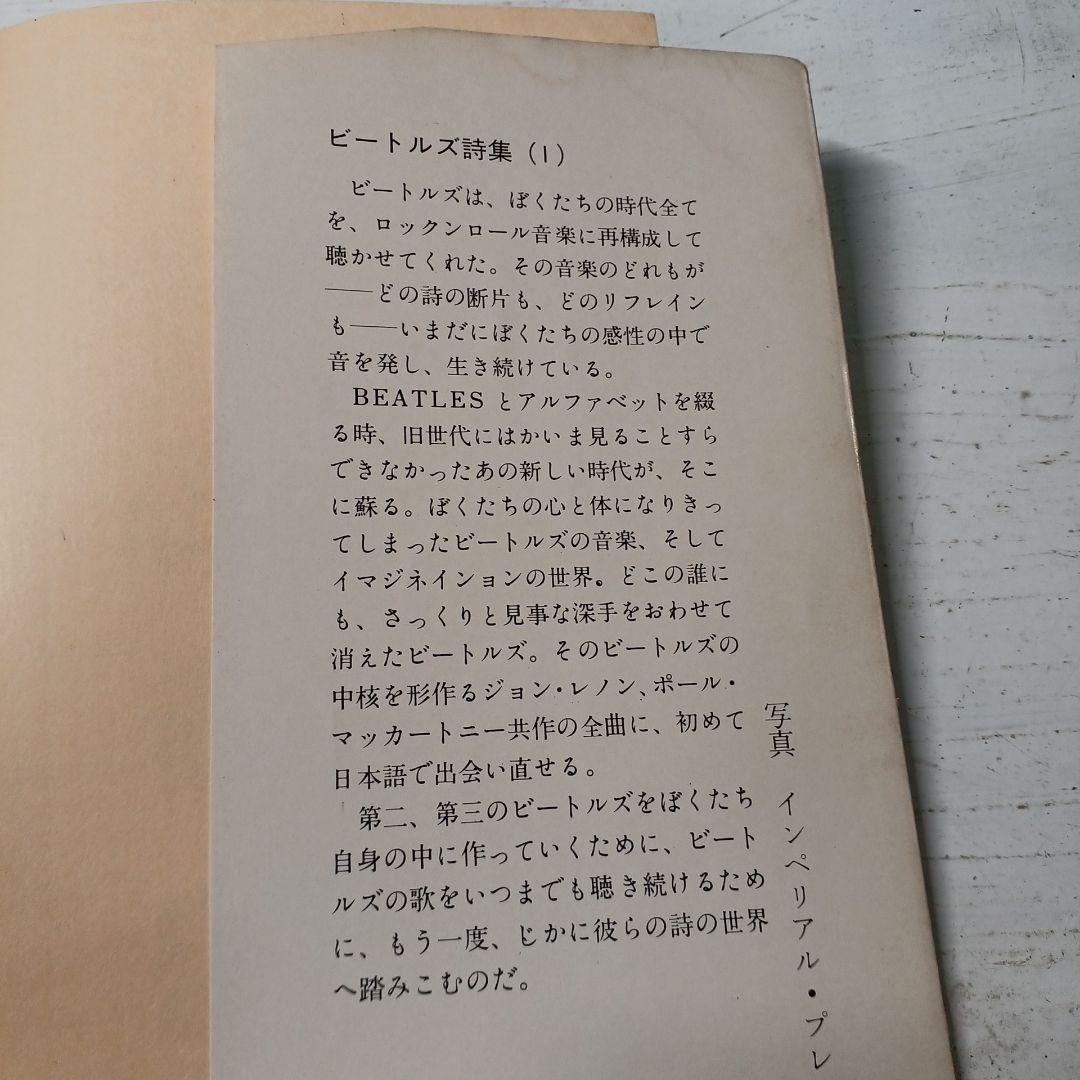 ビートルズ詩集(1)
ビートルズは、ぼくたちの時代全て
を、ロックンロール音楽に再構成して
聴かせてくれた。その音楽のどれもが
――どの詩の断片も、どのリフレイン
も――いまだにぼくたちの感性の中で
音を発し、生き続けている。
BEATLESとアルファベットを綴
る時、旧世代にはかいま見ることすら
できなかったあの新しい時代が、そこ
に蘇る。ぼくたちの心と体になりきっ
てしまったビートルズの音楽、そして
イマジネイションの世界。どこの誰に
も、さっくりと見事な深手をおわせて
消えたビートルズ。そのビートルズの
中核を形作るジョン・レノン、ポール・
マッカートニー共作の全曲に、初めて
日本語で出会い直せる。
第二、第三のビートルズをぼくたち
自身の中に作っていくために、ビート
ルズの歌をいつまでも聴き続けるため
に、もう一度、じかに彼らの詩の世界
へ踏みこむのだ。
写真 インペリアル・プレ